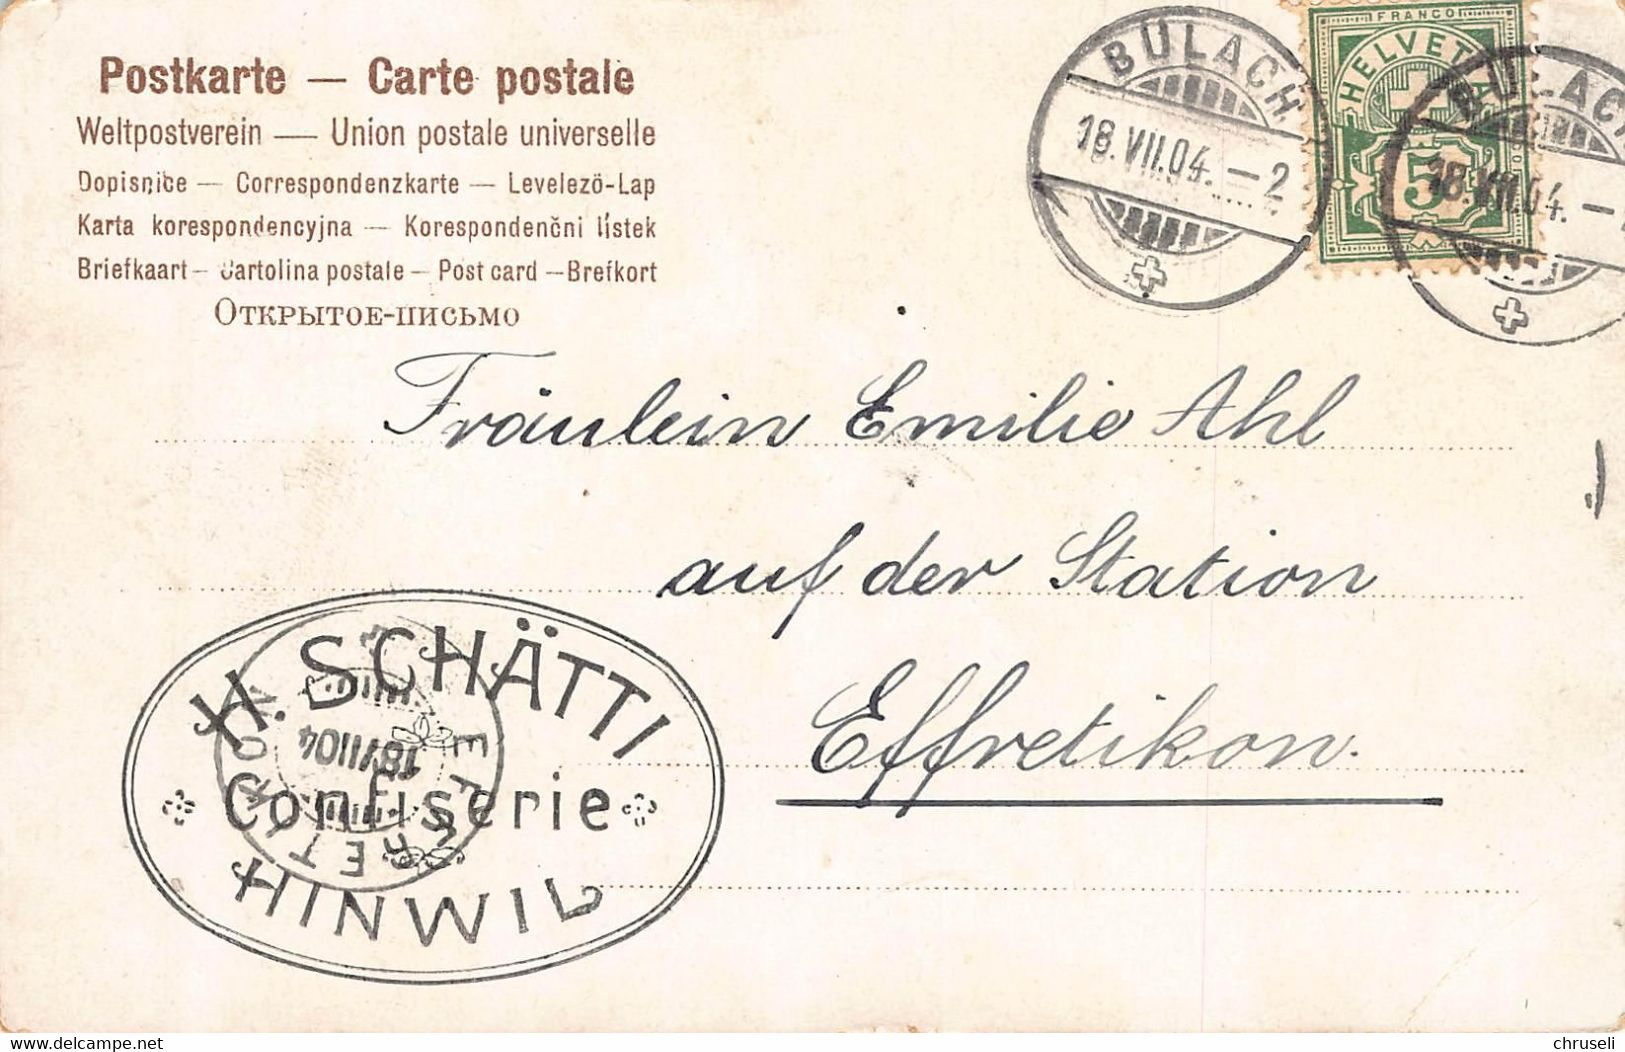 Postkarte — Carte postale
Weltpostverein — Union postale universelle
Dopisnice — Correspondenzkarte — Levelezö-Lap
Karta korespondencyjna — Korespondenčni lístek
Briefkaart — Cartolina postale — Post card — Brefkort
Открытое-письмо
BULACH
18.VII.04.–2
FRANCO
HELVETIA
5
BULACH
18.VII.04.–
Fräulein Emilie Ahl
auf der Station
Effretikon.
H. SCHÄTTI
Confiserie
HINWIL
EFFRETIKON
18 VII 04
delcampe.net
chruseli